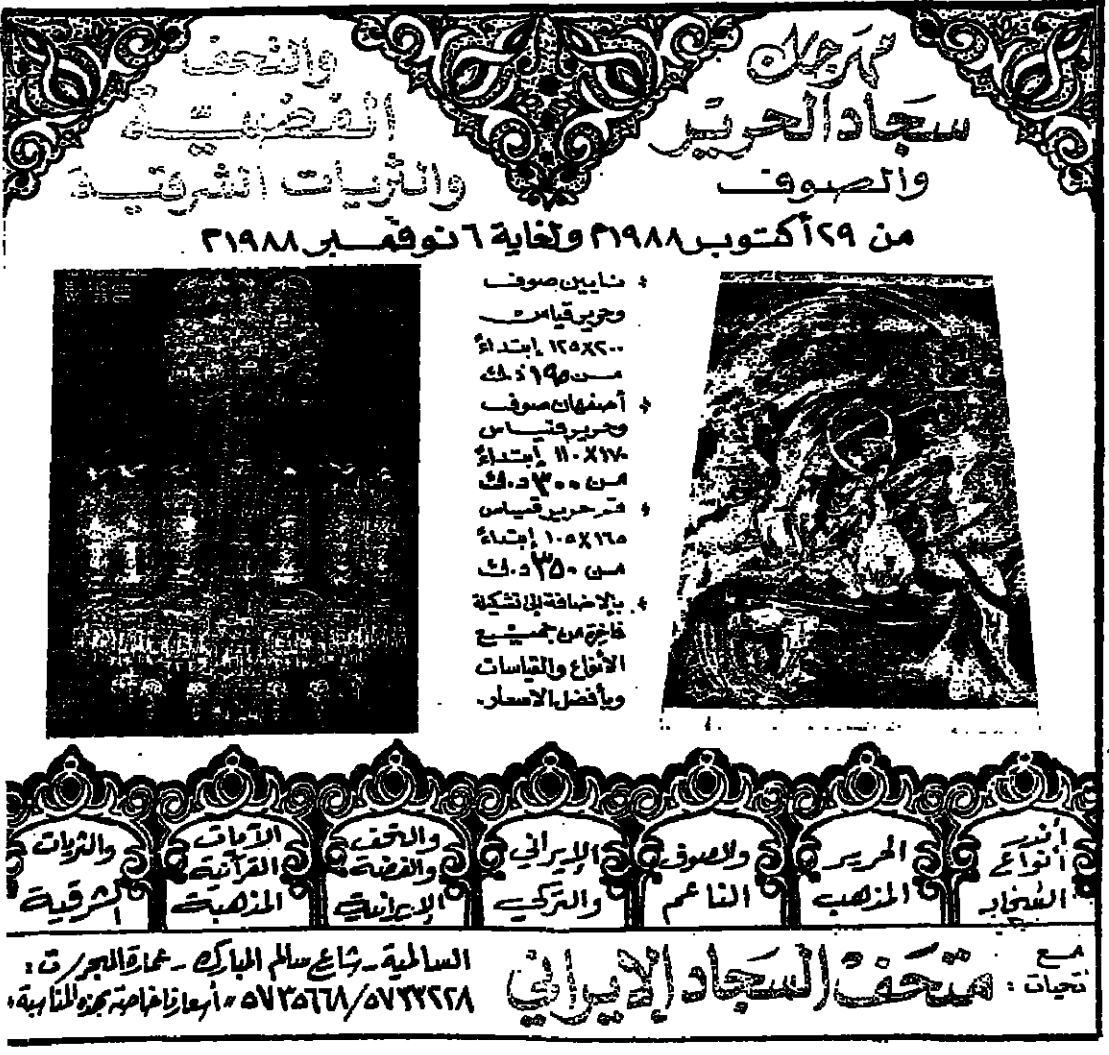 مهرجان
سجاد الحرير
والصوف
والتحف
الفضية
والثريات الشرقية
من ٢٩ أكتوبر ١٩٨٨م ولغاية ٦ نوفمبر ١٩٨٨م
* نايين صوف
وحرير قياس
٢٠٠×١٢٥ إبتداءً
من ١٩٥ د.ك
* أصفهان صوف
وحرير قياس
١٧٠×١١٠ إبتداءً
من ٣٠٠ د.ك
* قم حرير قياس
١٦٥×١٠٥ إبتداءً
من ٣٥٠ د.ك
* بالاضافة إلى تشكيلة
فاخرة من جميع
الأنواع والقياسات
وبأفضل الاسعار.
أندر
أنواع
السجاد
الحرير
المذهب
والصوف
الناعم
الإيراني
والتركي
والتحف
والفضة
الإيرانية
الآيات
القرآنية
المذهبة
والثريات
الشرقية
مع
تحيات :
متحف السجاد الإيراني
السالمية - شارع سالم المبارك - عمارة البحر / ت :
٥٧٣٥٦٦٨/٥٧٣٢٢٢٨ أسعارنا خاصة بهذه المناسبة